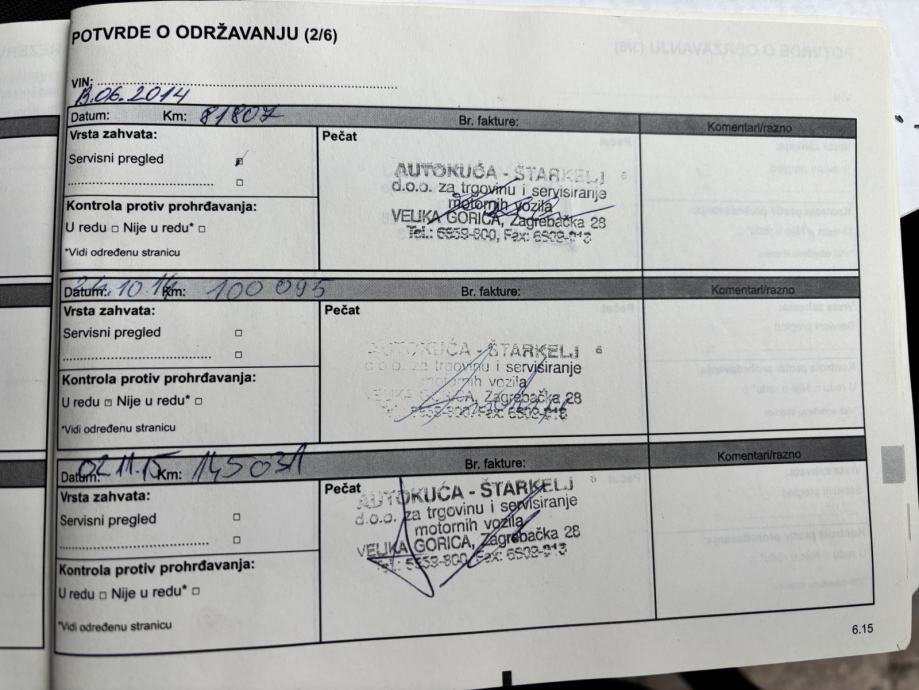 POTVRDE O ODRŽAVANJU (2/6)
VIN:
13.06.2014
Datum: Km: 81807 Br. fakture: Komentari/razno
Vrsta zahvata: Pečat
Servisni pregled
AUTOKUĆA - ŠTARKELJ 6
d.o.o. za trgovinu i servisiranje
motornih vozila
VELIKA GORICA, Zagrebačka 28
Kontrola protiv prohrđavanja:
U redu □ Nije u redu* □
*Vidi određenu stranicu
Datum: 24.10.14 Km: 100 095 Br. fakture: Komentari/razno
Vrsta zahvata: Pečat
Servisni pregled □
AUTOKUĆA - ŠTARKELJ 6
d.o.o. za trgovinu i servisiranje
motornih vozila
VELIKA GORICA, Zagrebačka 28
Kontrola protiv prohrđavanja:
U redu □ Nije u redu* □
*Vidi određenu stranicu
Datum: 02.11.15 Km: 145031 Br. fakture: Komentari/razno
Vrsta zahvata: Pečat
Servisni pregled □
AUTOKUĆA - ŠTARKELJ 6
d.o.o. za trgovinu i servisiranje
motornih vozila
VELIKA GORICA, Zagrebačka 28
Kontrola protiv prohrđavanja:
U redu □ Nije u redu* □
*Vidi određenu stranicu
6.15